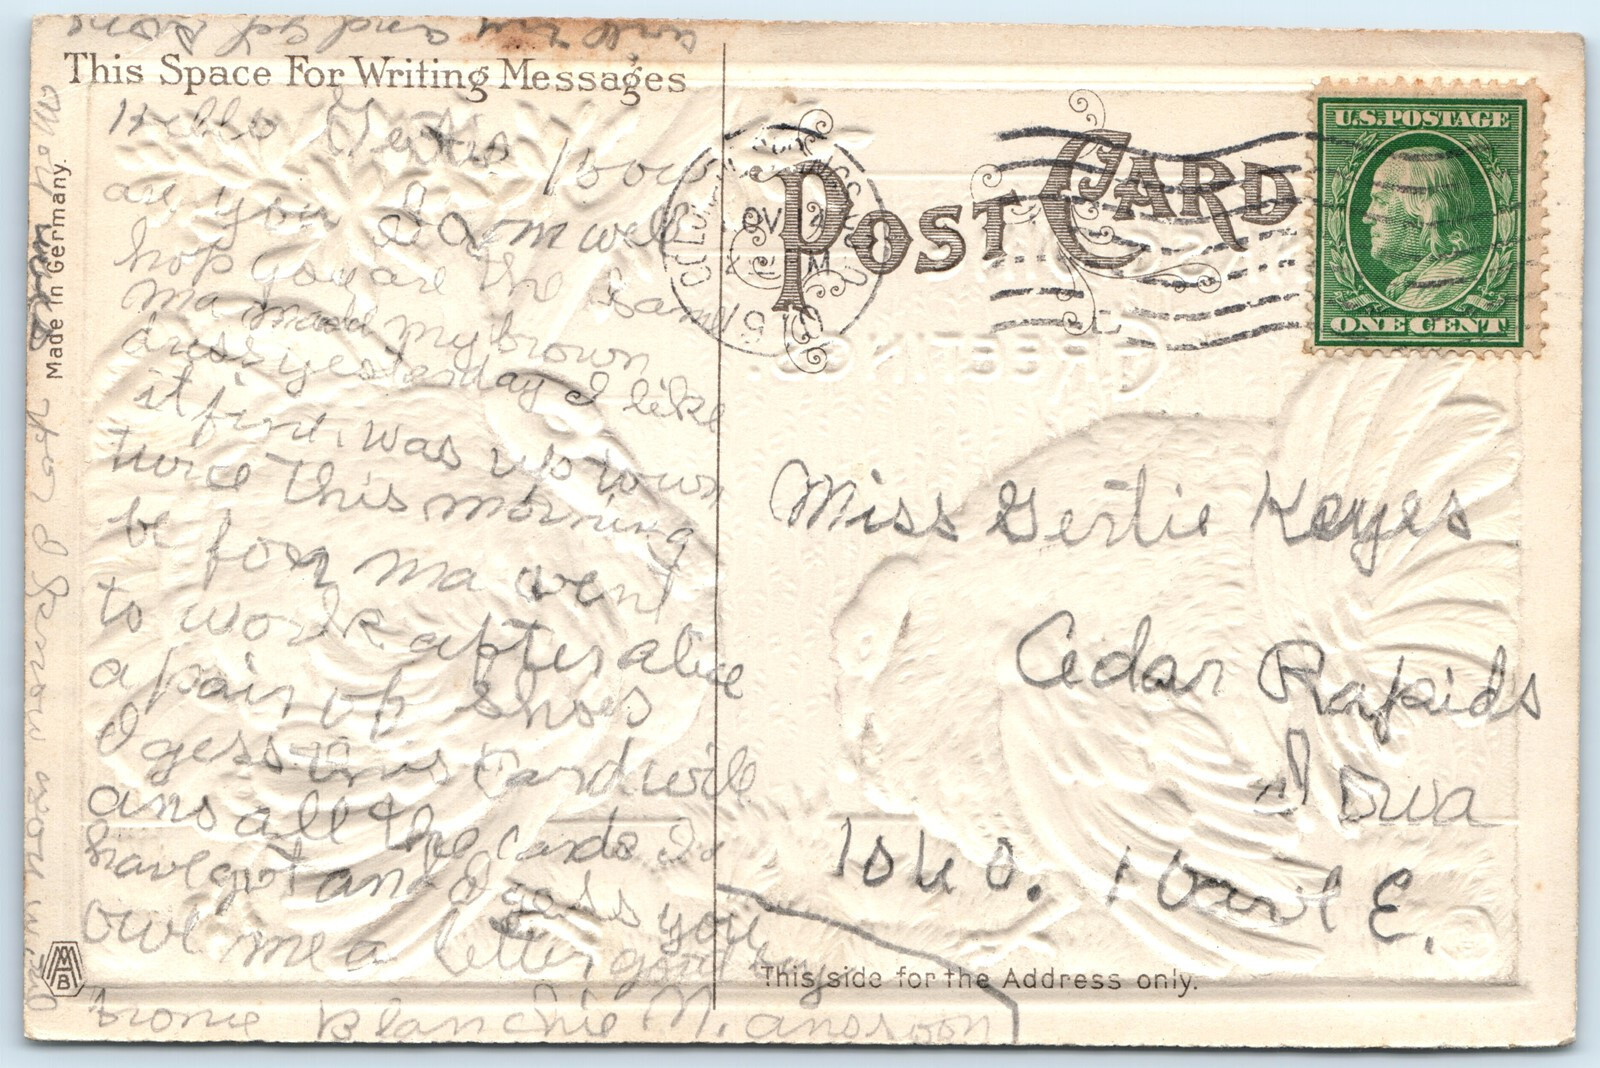 This Space For Writing Messages
Hello Gertie how
are you I am well
hop you are the same
ma maed my brown
dress yesterday I like
it fine. was up town
twice this morning
be for ma went
to work after alice
a pair of shoes
I gess this card will
ans all the cards I
have got and I gess you
owe me a letter, good by
from Blanchie M. ans soon
will try and get some
Made in Germany.
POST CARD
U.S. POSTAGE
ONE CENT
Miss Gertie Keyes
Cedar Rapids
Iowa
E.
This side for the Address only.
MAB
GREETINGS